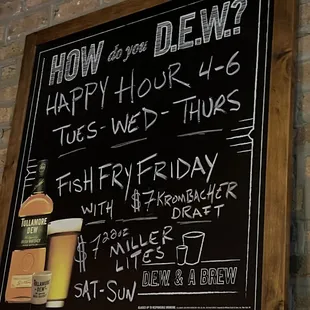 HOW do you D.E.W.?
HAPPY HOUR 4-6
TUES-WED-THURS
FISH FRY FRIDAY
WITH $7 KROMBACHER
DRAFT
$7 22oz
MILLER
LITES
SAT-SUN
DEW & A BREW
TULLAMORE
DEW